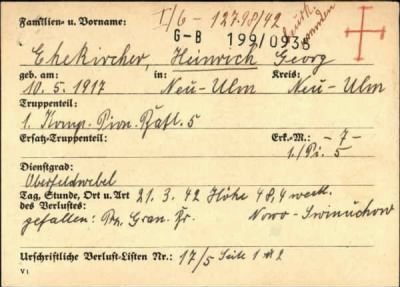 Familien- u. Vorname: I/G - 12798/42
G-B 199/0935
Ehekircher, Heinrich Georg
geb. am: in: Kreis:
10.5.1917 Neu-Ulm Neu-Ulm
Truppenteil:
1. Komp. Pion. Batl. 5
Ersatz-Truppenteil: Erk.-M.: -7-
1./Pi. 5
Dienstgrad:
Oberfeldwebel
Tag, Stunde, Ort u. Art 21.3.42 Höhe 48,4 westl.
des Verlustes:
gefallen: Gran. Nowo-Swinuchowo
Urschriftliche Verlust-Listen Nr.: 17/5 Seite 1
V1